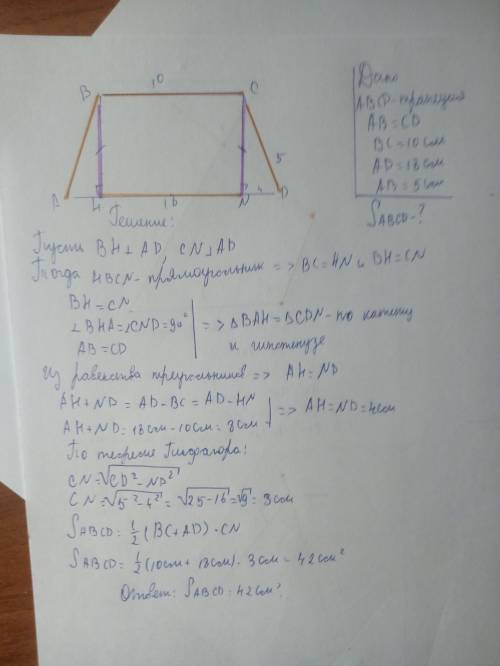 10
B
C
5
A
H
10
N
4
D
Дано
ABCD-трапеция
AB=CD
BC=10см
AD=18см
AB=5см
SABCD-?
Решение:
Пусть BH⊥AD, CN⊥AD
Тогда HBCN-прямоугольник => BC=HN и BH=CN
BH=CN
∠BHA=∠CND=90°
AB=CD
=> ΔBAH=ΔCDN-по катету
и гипотенузе
Из равенства треугольников => AH=ND
AH+ND=AD-BC=AD-HN
AH+ND=18см-10см=8см
=> AH=ND=4см
По теореме Пифагора:
CN=√CD²-ND²
CN=√5²-4²=√25-16=√9=3см
SABCD=½(BC+AD)·CN
SABCD=½(10см+18см)·3см=42см²
Ответ: SABCD=42см²